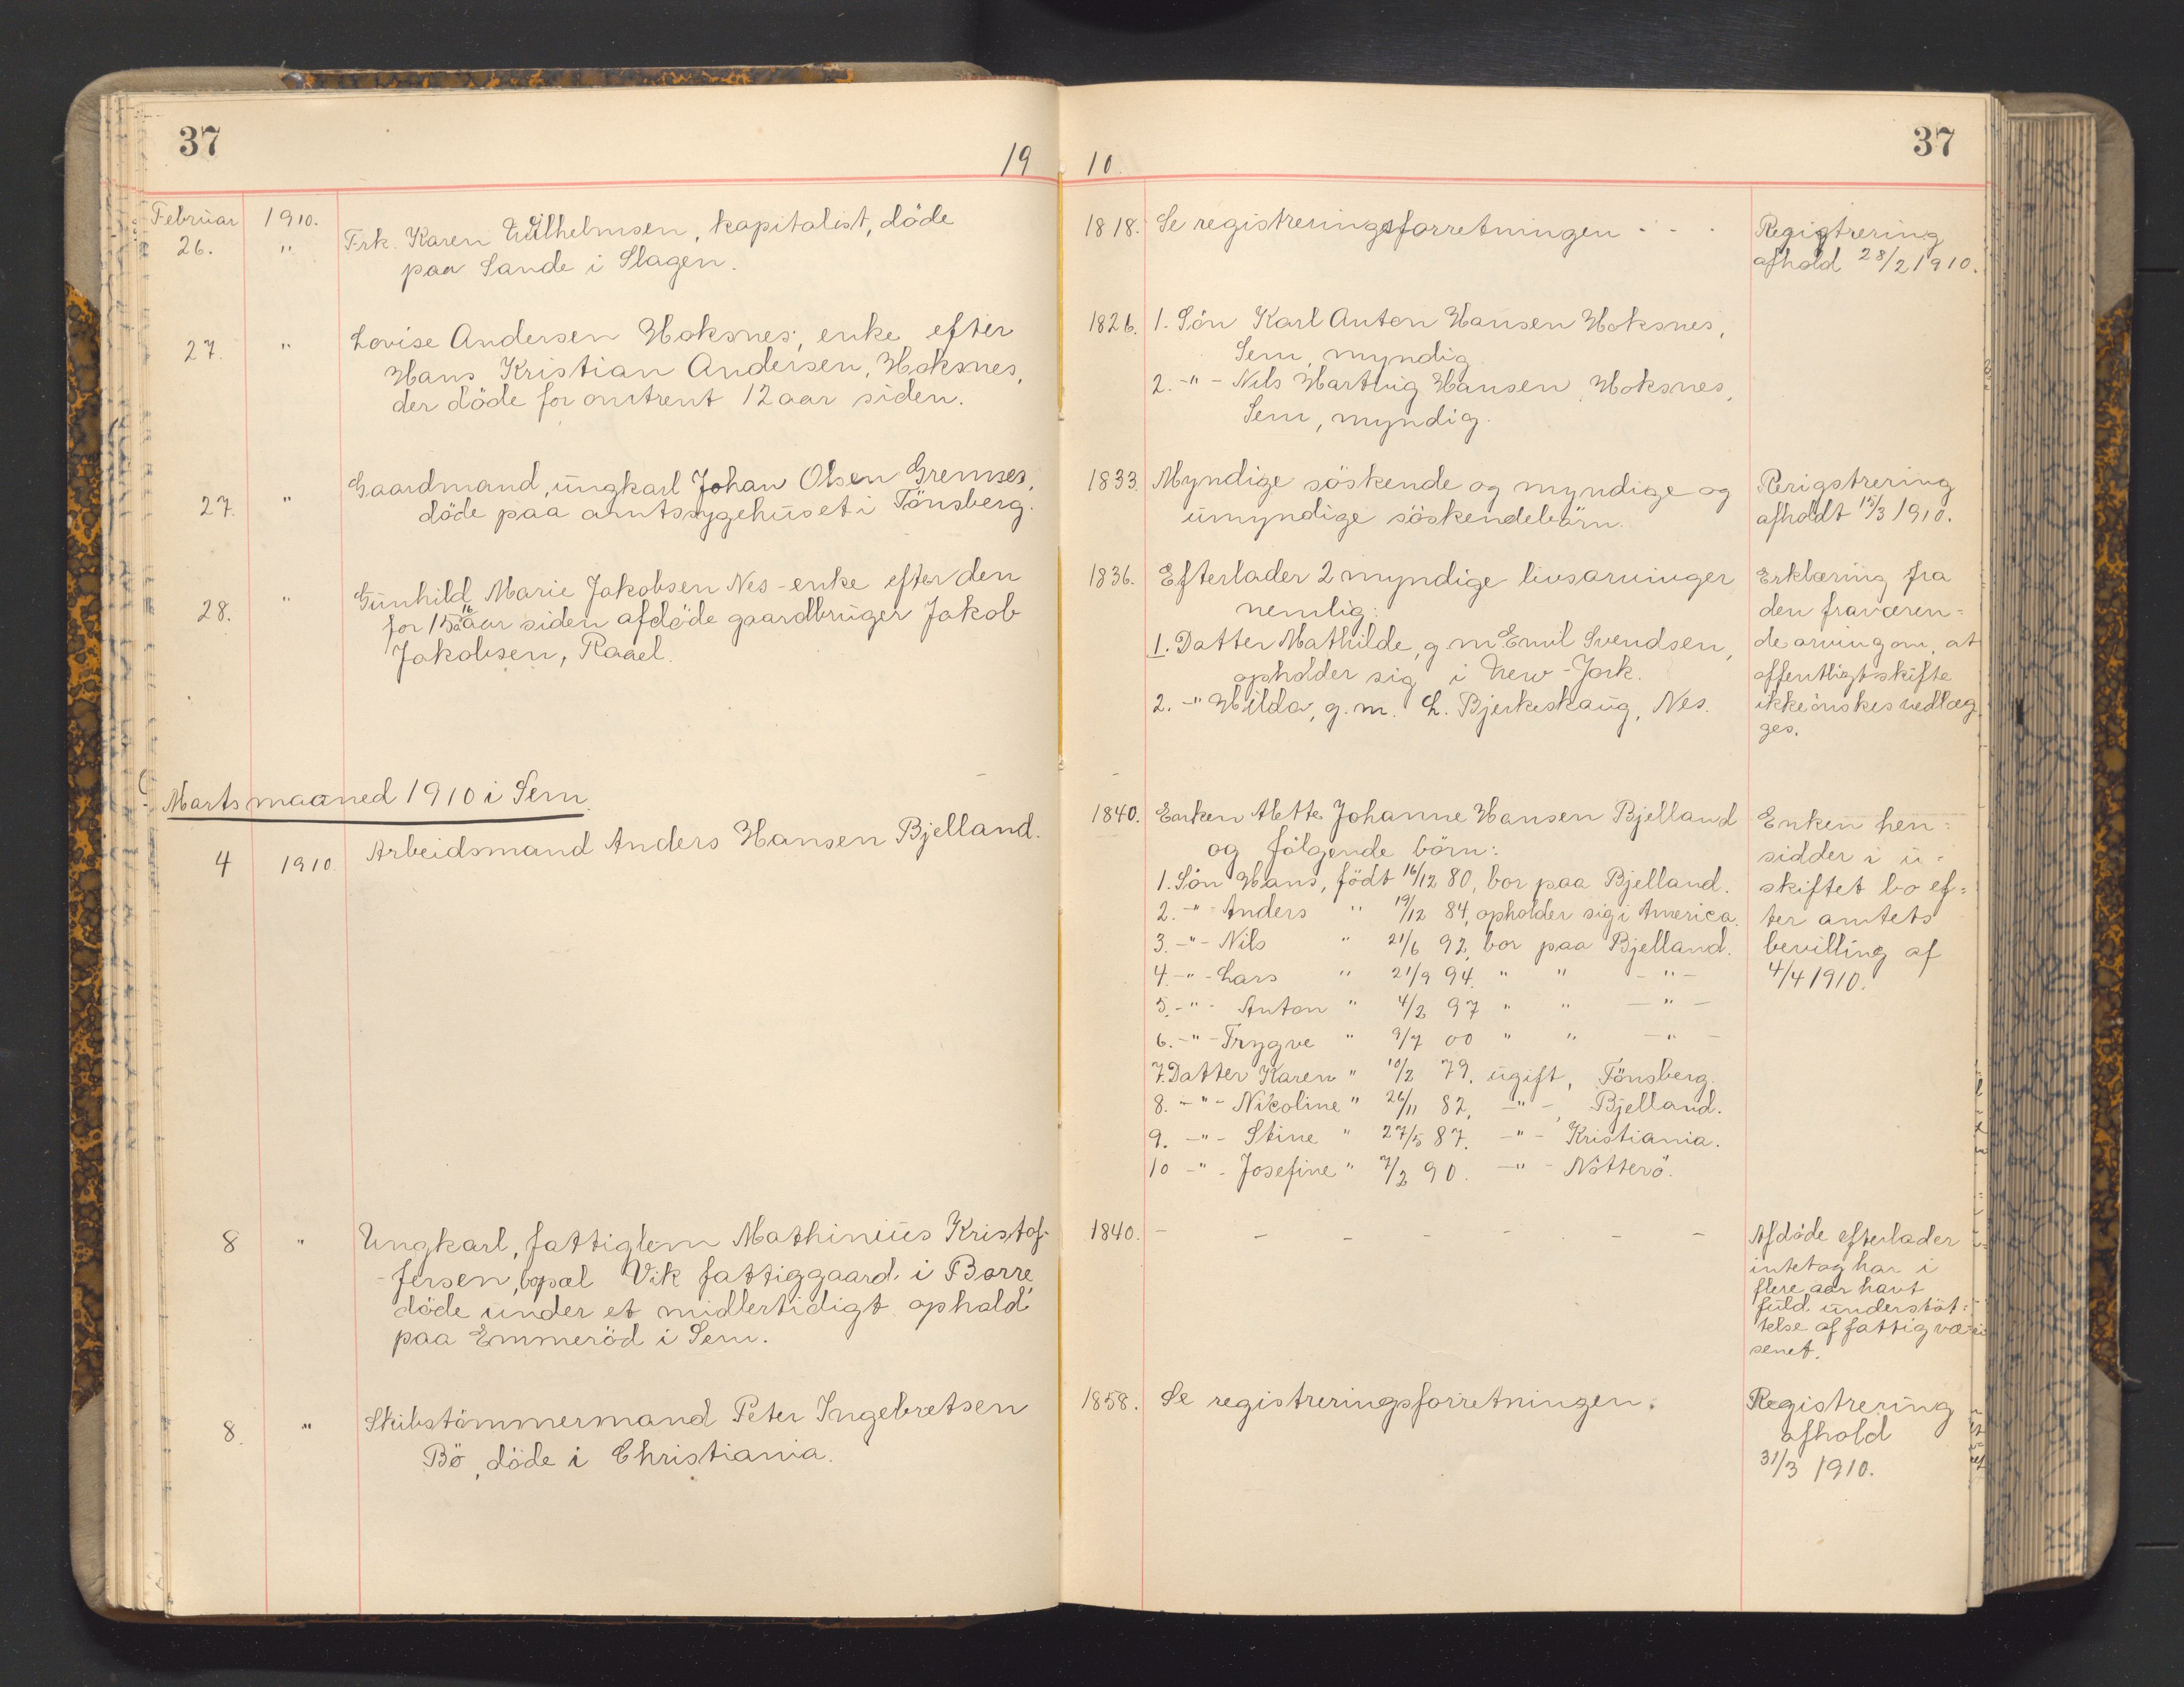 37
19 10.
37
Februar 1910.
26. " Frk. Karen Wilhelmsen, kapitalist, döde
paa Sande i Slagen.
1818. Se registreringsforretningen - - -
Regigtrering
afhold 28/2 1910.
27. " Lovise Andersen Hoksnes, enke efter
Hans Kristian Andersen, Hoksnes,
der döde for omtrent 12 aar siden.
1826. 1. Sön Karl Anton Hansen Hoksnes,
Sem, myndig.
2. -"- Nils Hartvig Hansen Hoksnes,
Sem, myndig.
27. " Gaardmand, ungkarl Johan Olsen Gremnes,
döde paa amtssygehuset i Tönsberg.
1833. Myndige söskende og myndige og
umyndige söskendebörn.
Rerigstrering
afholdt 15/3 1910.
28. " Gunhild Marie Jakobsen Nes - enke efter den
for 15 à 16 aar siden afdöde gaardbruger Jakob
Jakobsen, Raael.
1836. Efterlader 2 myndige livsarvinger
nemlig:
1. Datter Mathilde, g.m. Emil Svendsen,
opholder sig i New-Jork.
2. -"- Hilda, g.m. L. Bjerkeskaug, Nes.
Erklæring fra
den fraværen=
de arving om, at
offentligt skifte
ikke önskes vedlæg
ges.
Marts maaned 1910 i Sem.
4 1910. Arbeidsmand Anders Hansen Bjelland.
1840. Enken Alette Johanne Hansen Bjelland
og fölgende börn:
1. Sön Hans, födt 16/12 80, bor paa Bjelland.
2. -"- Anders " 19/12 84, opholder sig i America.
3. -"- Nils " 21/6 92, bor paa Bjelland.
4. -"- Lars " 21/9 94. " " -"-
5. -"- Anton " 4/2 97 " " -"-
6. -"- Trygve " 9/7 00 " " -"-
7. Datter Karen " 10/2 79. ugift, Tönsberg.
8. -"- Nikoline " 26/11 82. -"-, Bjelland.
9. -"- Stine " 27/5 87. -"- Kristiania.
10 -"- Josefine " 7/2 90. -"- Nötterö.
Enken hen=
sidder i u=
skiftet bo ef=
ter amtets
bevilling af
4/4 1910.
8 " Ungkarl, fattiglem Mathinius Kristof-
fersen, bopæl Vik fattiggaard i Borre,
döde under et midlertidigt ophold
paa Emmeröd i Sem.
1840. - - - - - - -
Afdöde efterlader
intet og har i
flere aar havt
fuld understöt=
telse af fattigvæ=
senet.
8. " Skibstömmermand Peter Ingebretsen
Bö, döde i Christiania.
1858. Se registreringsforretningen.
Registrering
afhold
31/3 1910.